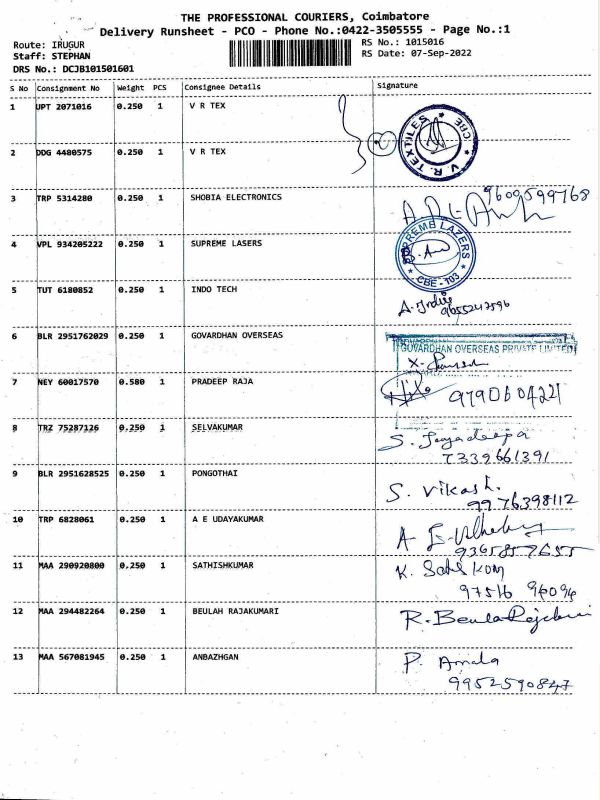 THE PROFESSIONAL COURIERS, Coimbatore
Delivery Runsheet - PCO - Phone No.:0422-3505555 - Page No.:1
Route: IRUGUR
Staff: STEPHAN
DRS No.: DCJB101501601
RS No.: 1015016
RS Date: 07-Sep-2022
S No Consignment No Weight PCS Consignee Details Signature
1 UPT 2071016 0.250 1 V R TEX
V. R. TEXTILES CBE
2 DDG 4480575 0.250 1 V R TEX
3 TRP 5314280 0.250 1 SHOBIA ELECTRONICS 9609599768
4 VPL 934205222 0.250 1 SUPREME LASERS
SUPREME LAZERS CBE - 103
5 TUT 6180852 0.250 1 INDO TECH
9655247596
6 BLR 2951762029 0.250 1 GOVARDHAN OVERSEAS
GOVARDHAN OVERSEAS PRIVATE LIMITED
7 NEY 60017570 0.580 1 PRADEEP RAJA
9790604221
8 TRZ 75287126 0.250 1 SELVAKUMAR
S. Jayadeepa
7339661391
9 BLR 2951628525 0.250 1 PONGOTHAI
S. Vikash.
9976398112
10 TRP 6828061 0.250 1 A E UDAYAKUMAR
9365857655
11 MAA 290920800 0.250 1 SATHISHKUMAR
97516 96094
12 MAA 294482264 0.250 1 BEULAH RAJAKUMARI
R. Beula
13 MAA 567081945 0.250 1 ANBAZHGAN
P. Amala
9952590847